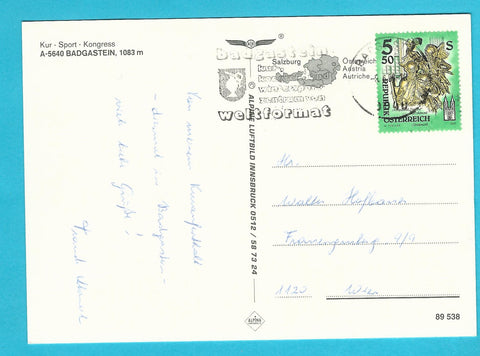 Kur · Sport · Kongress
A-5640 BADGASTEIN, 1083 m
Badgastein
Salzburg
Österreich
Austria
Autriche
weltformat
5 50 S
REPUBLIK
ÖSTERREICH
© ALPINE LUFTBILD INNSBRUCK 0512 / 58 73 24
Von meinem Kuraufenthalt
- diesmal in Badgastein -
viele liebe Grüße!
Hr.
Walter
9/9
1120 Wien
ALPINE
89 538